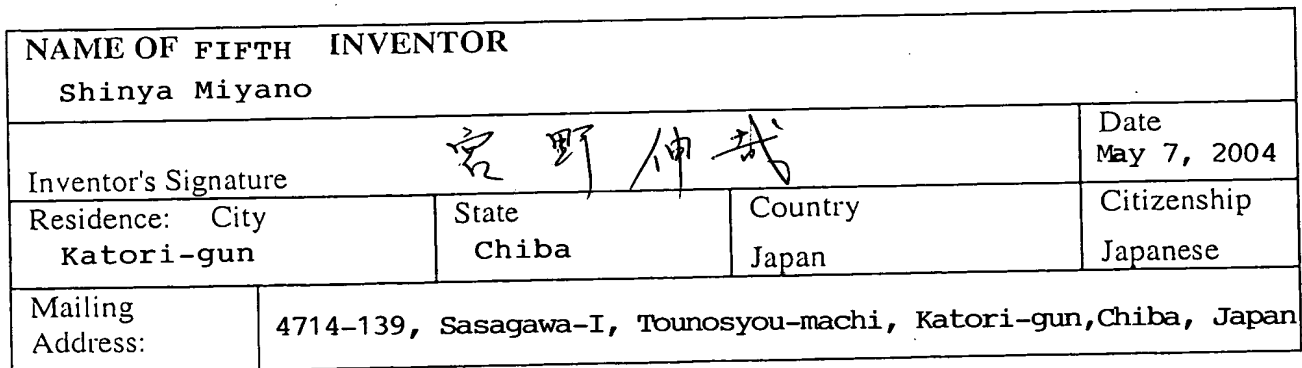 NAME OF FIFTH INVENTOR
Shinya Miyano
Inventor's Signature 宮野伸哉
Date
May 7, 2004
Residence: City
Katori-gun
State
Chiba
Country
Japan
Citizenship
Japanese
Mailing
Address:
4714-139, Sasagawa-I, Tounosyou-machi, Katori-gun,Chiba, Japan